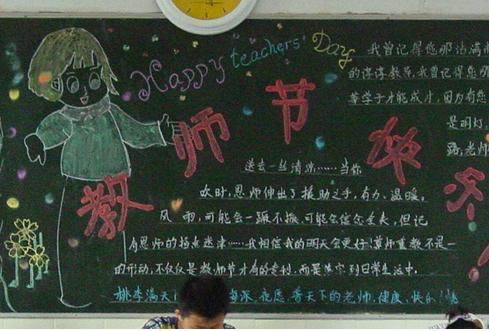 Happy teachers' Day
教师节快乐
我曾记得您那沾满
的谆谆教导,我曾记得您那
等学子才能成才,因为有您
是明灯,
路,老师
送去一丝清凉……当你
时,恩师伸出了援助之手,有力、温暖。
风雨,可能会一蹶不振,可能会信念丢失,但记
有恩师的指点迷津……我相信我的明天会更好!尊师重教不是一
的行动,不仅仅是教师节才有的专利,而是落实到日常生活中。
桃李满天 海深,祝愿,普天下的老师,健康,快乐!